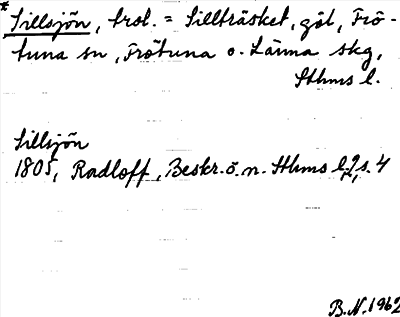 * Sillsjön, trol. = Sillträsket, göl, Frö-
tuna sn, Frötuna o. Länna skg,
Sthms l.
Sillsjön
1805, Radloff, Beskr. ö. n. Sthms l. 2, s. 4
B.N. 1962